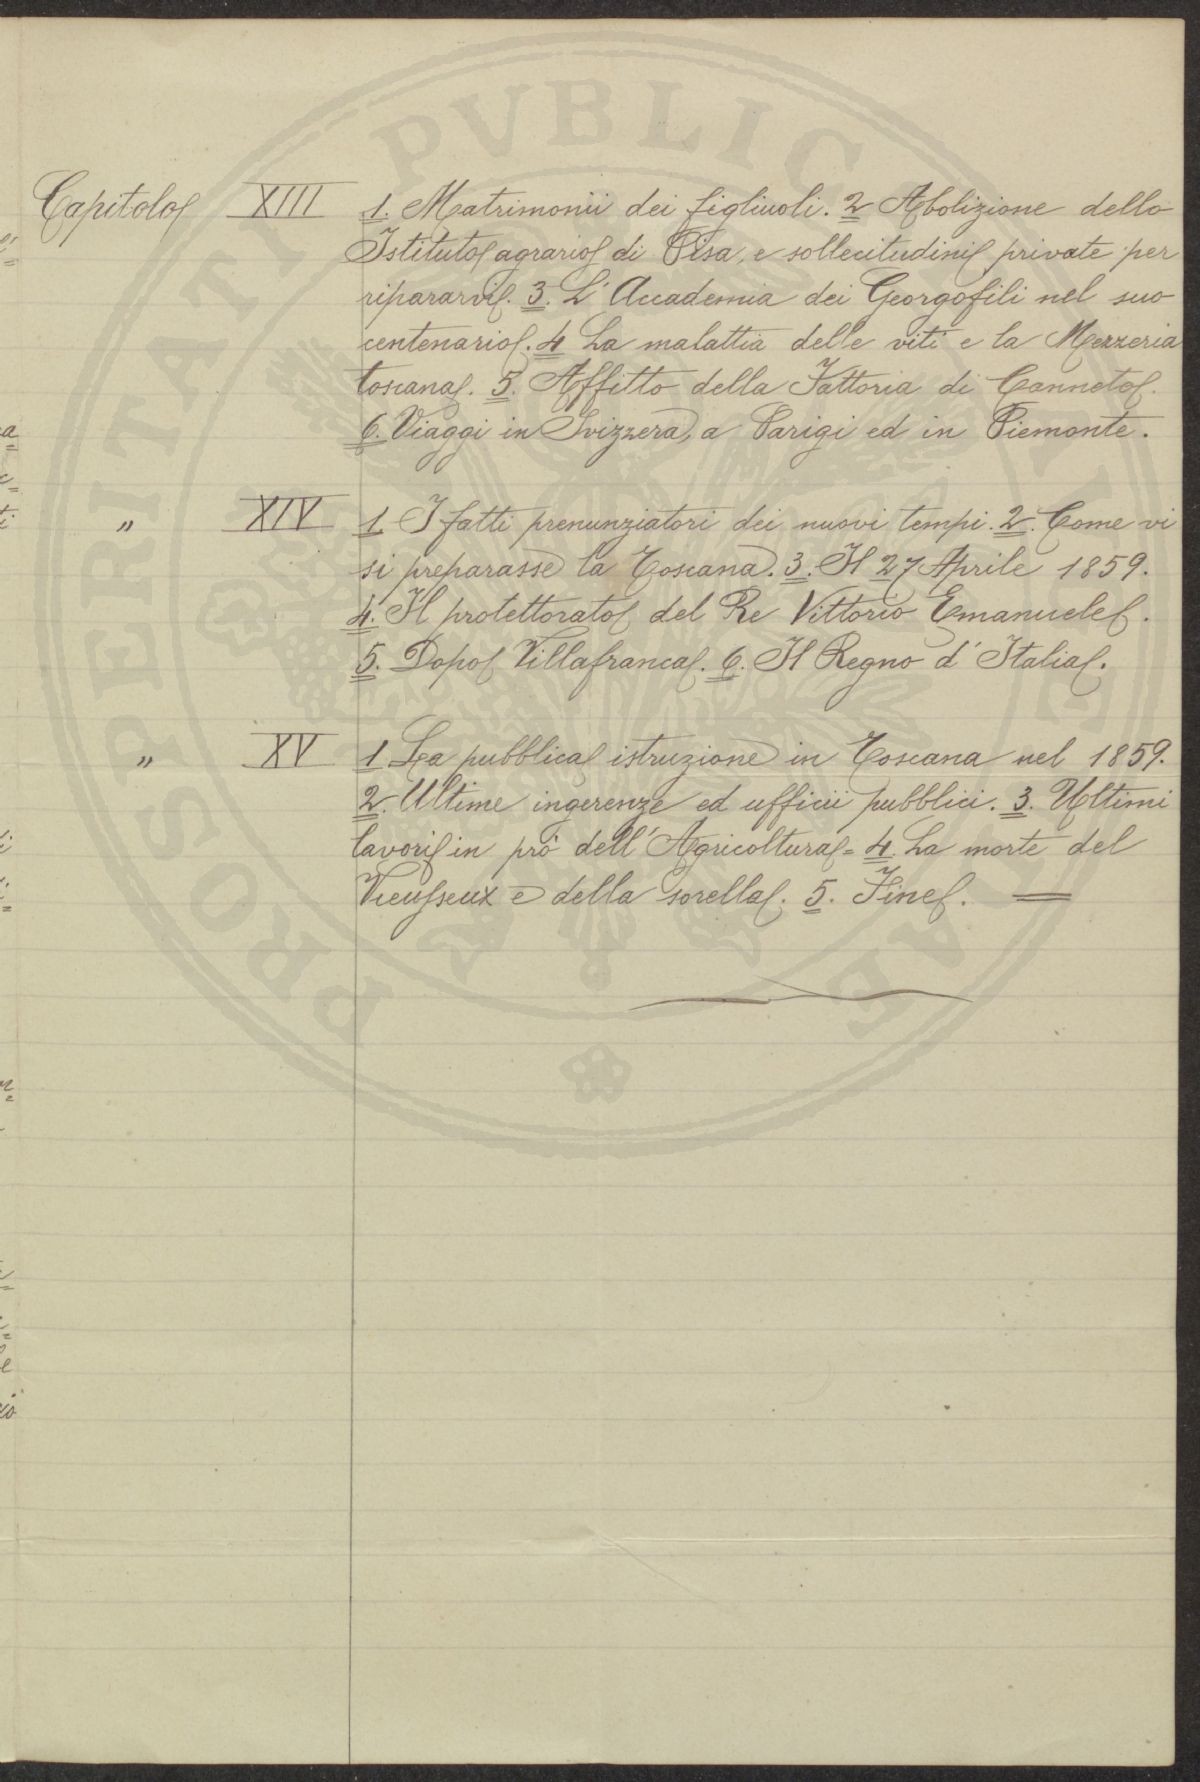 Capitolo XIII 1. Matrimonii dei figliuoli. 2 Abolizione dello
Istituto agrario di Pisa, e sollecitudini private per
ripararvi. 3. L' Accademia dei Georgofili nel suo
centenario. 4 La malattia delle viti e la Mezzeria
toscana. 5. Affitto della Fattoria di Canneto.
6. Viaggi in Svizzera, a Parigi ed in Piemonte.
" XIV 1 I fatti prenunziatori dei nuovi tempi. 2. Come vi
si preparasse la Toscana. 3. Il 27 Aprile 1859.
4. Il protettorato del Re Vittorio Emanuele.
5. Dopo Villafranca. 6. Il Regno d' Italia.
" XV 1 La pubblica istruzione in Toscana nel 1859.
2. Ultime ingerenze ed ufficii pubblici. 3. Ultimi
lavori in prò dell' Agricoltura = 4. La morte del
Vieusseux e della sorella. 5. Fine.
PROSPERITATI PVBLICAE